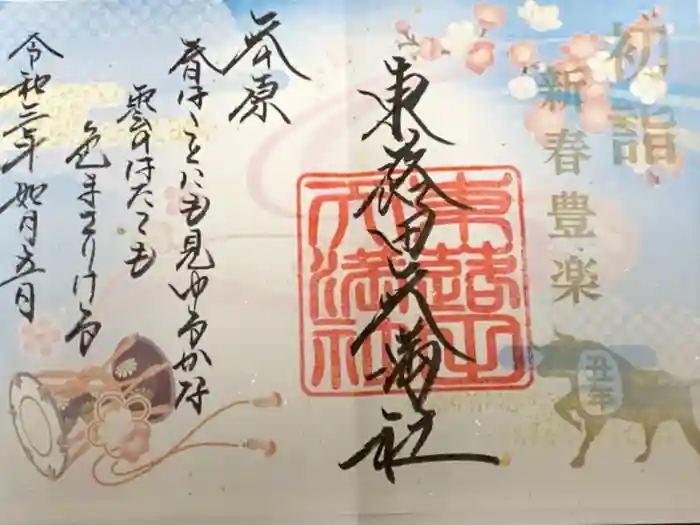 初詣
新春豊楽
丑年
東蕗田天満社
東蕗田
天満社
春はことにも見ゆるかな
雲のはたても
色まさりける
令和三年如月五日